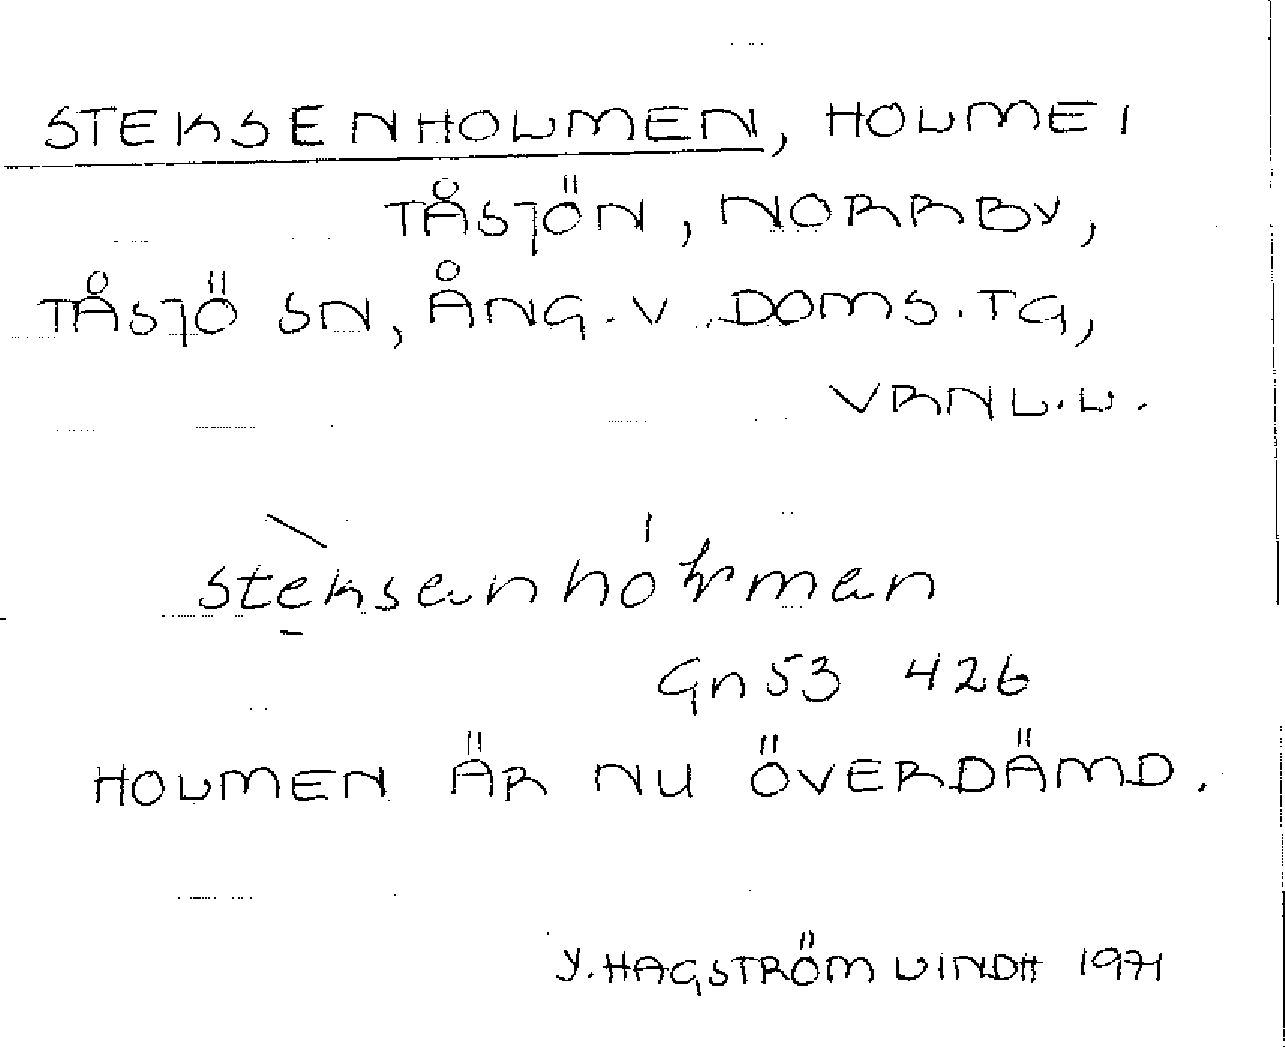 STEKSENHOLMEN, HOLME I
TÅSJÖN, NORRBY,
TÅSJÖ SN, ÅNG. V DOMS. TG,
VRNL.L.
Gn 53 426
HOLMEN ÄR NU ÖVERDÄMD.
Y. HAGSTRÖM LINDH 1971